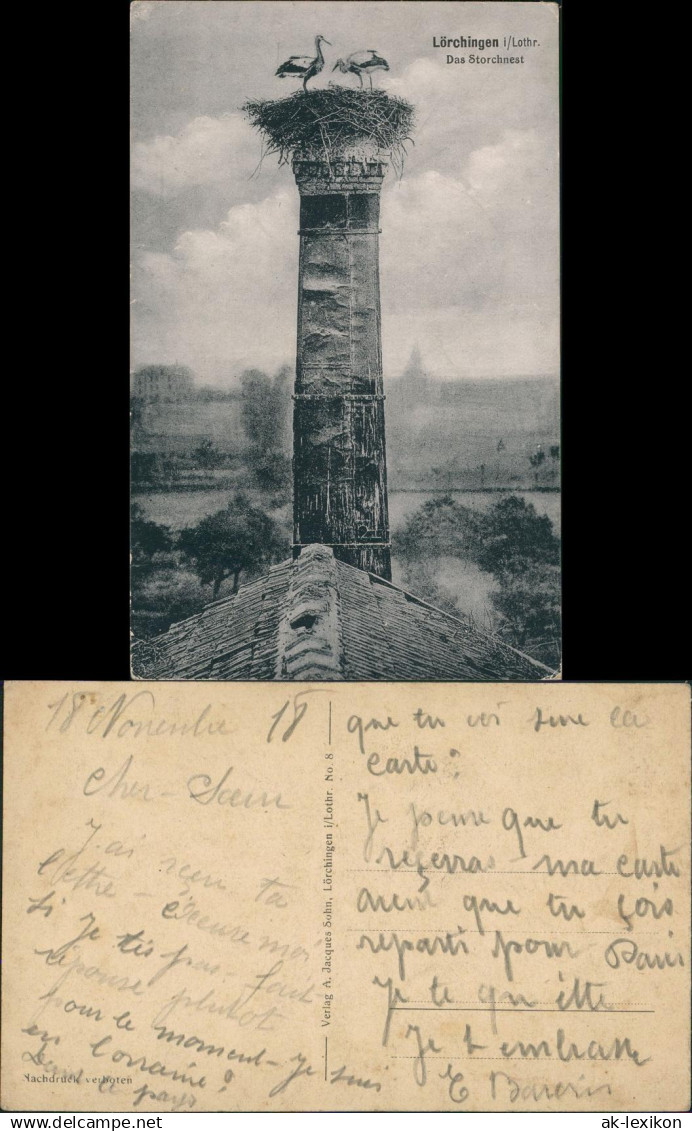 Lörchingen i/Lothr.
Das Storchnest
18 Novembre 18
Cher - Sœur
J'ai reçu ta
lettre - Excuse moi
si je
réponse plutôt
pour le moment - Je suis
en Lorraine?
Dans le pays
Nachdruck verboten
Verlag A. Jacques Sohn, Lörchingen i/Lothr. No. 8
que tu voi sur la
carte?
Je pense que tu
reçerras ma carte
avent que tu çois
reparti pour Paris
Je te quitte
Je t embrasse
E
ak-lexikon
© ak-lexikon.com